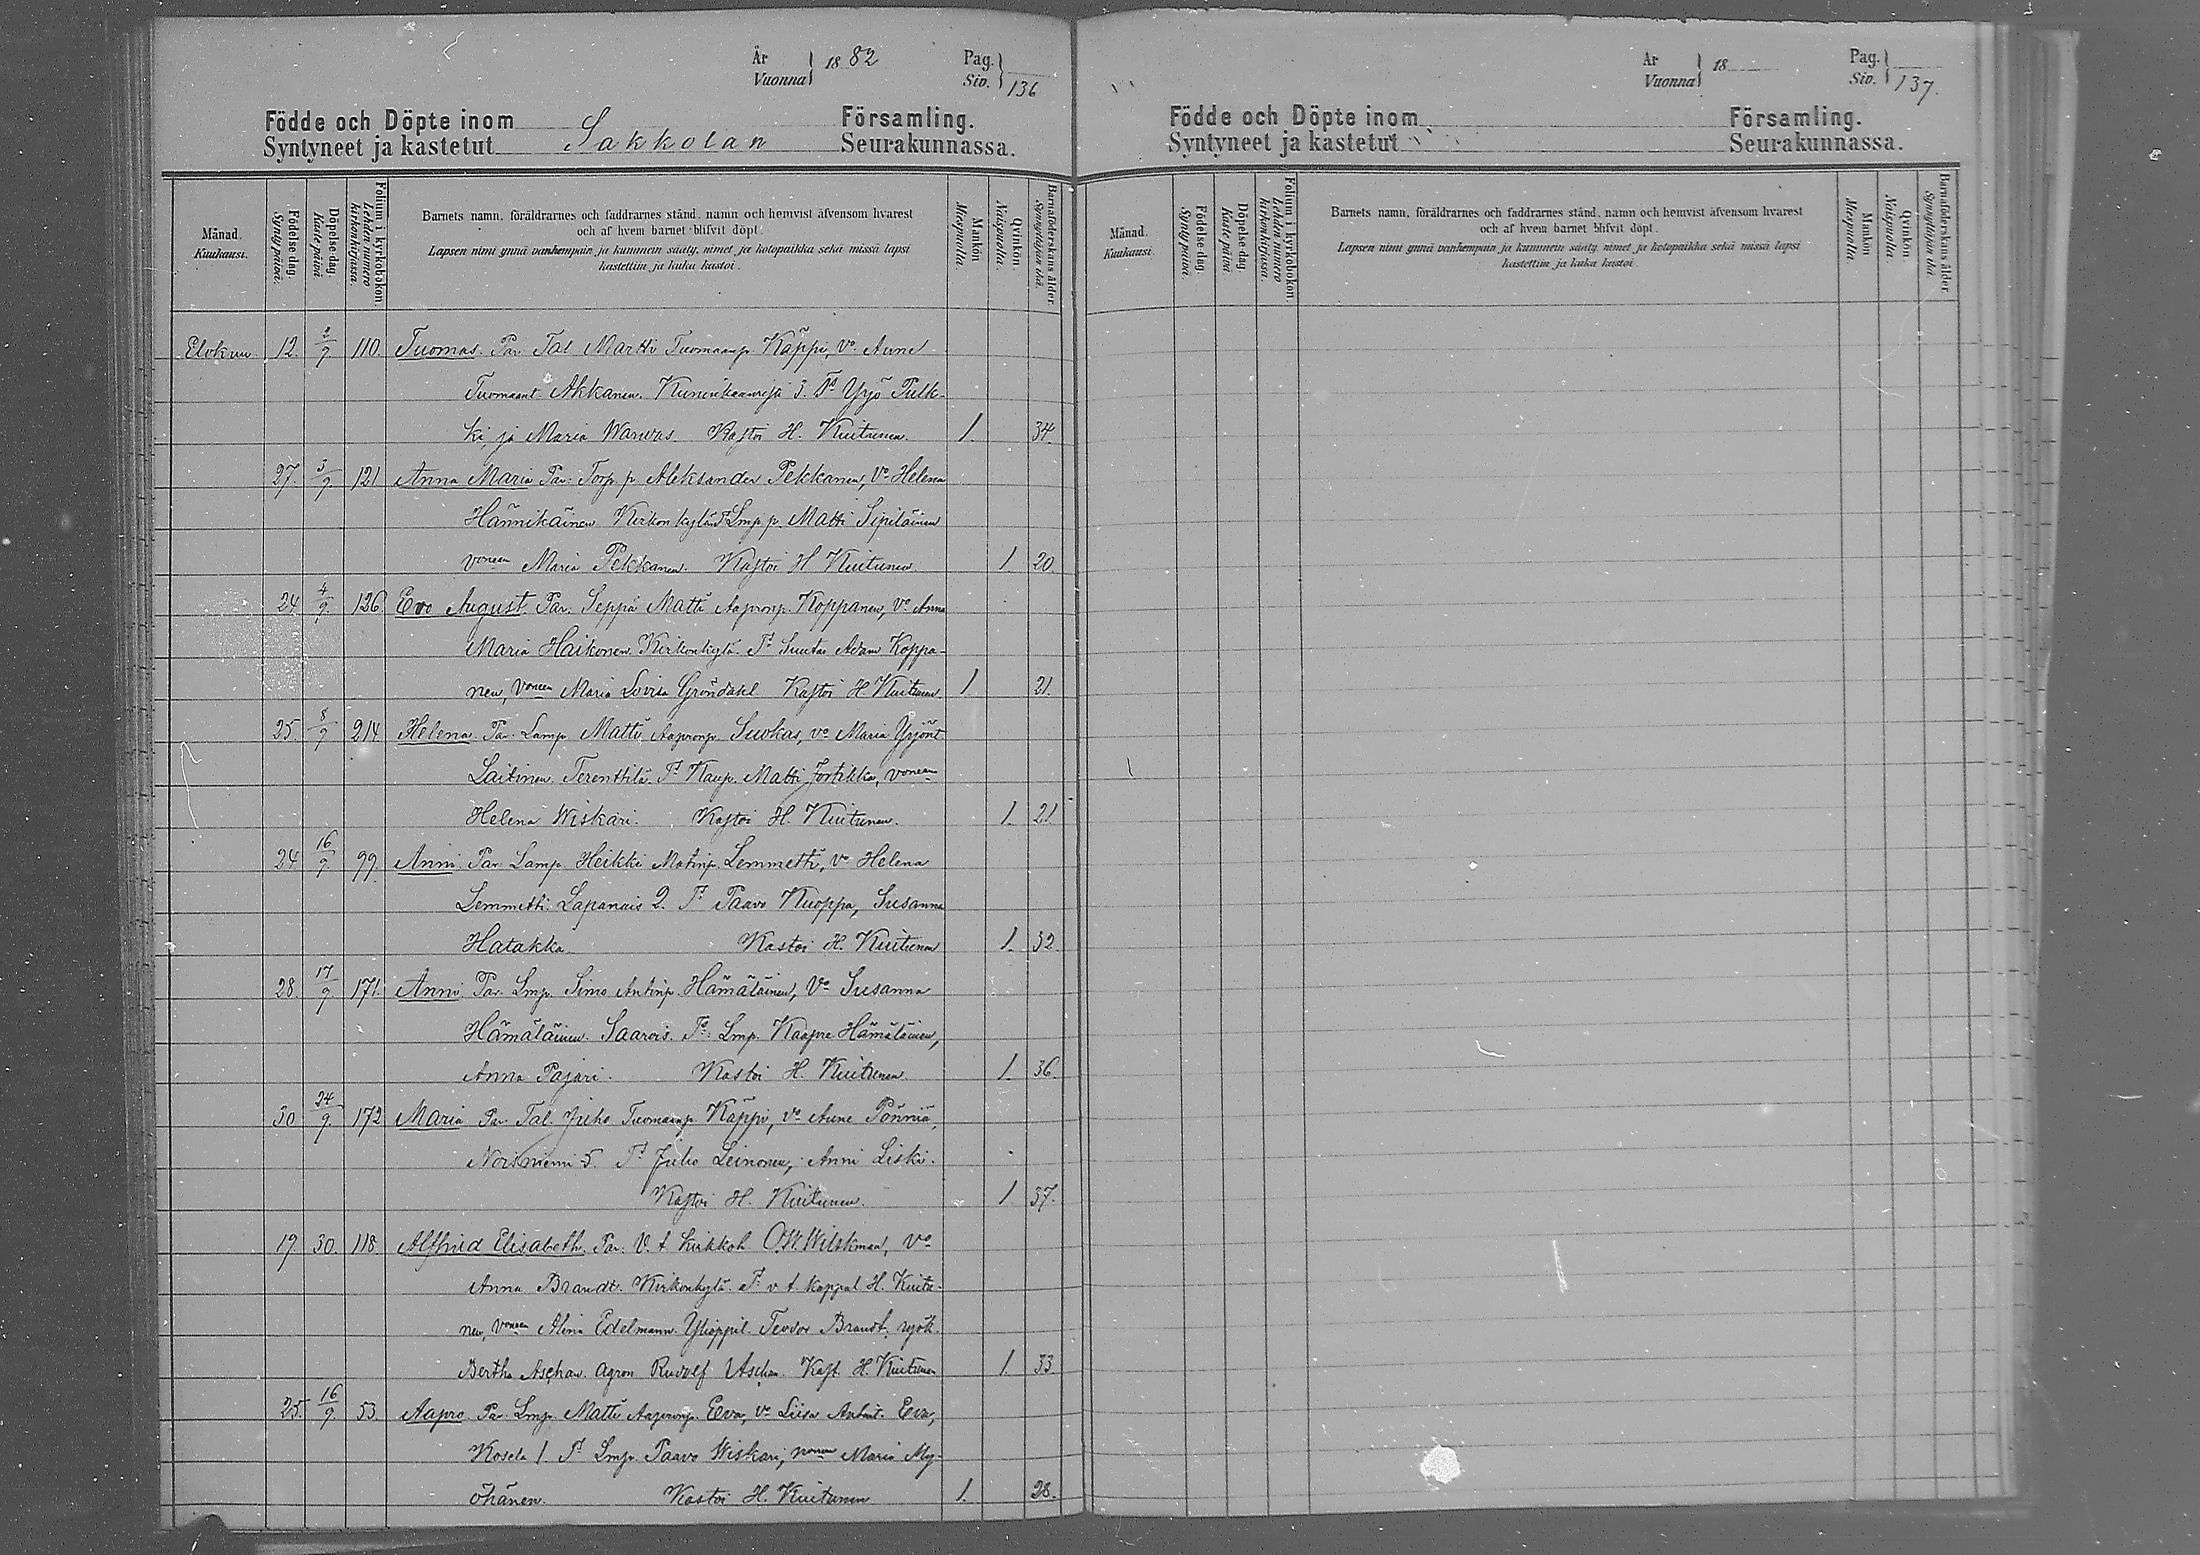 År
Vuonna 1882
Pag.
Siv. 136
Födde och Döpte inom Sakkolan Församling.
Syntyneet ja kastetut Seurakunnassa.
Månad.
Kuukausi.
Födelse dag.
Syntypäivä.
Döpelse dag
Kaste päivä.
Folium i kyrkoboken
Lehden numero
kirkonkirjassa.
Barnets namn, föräldrarnes och faddrarnes stånd, namn och hemvist äfvensom hvarest
och af hvem barnet blifvit döpt.
Lapsen nimi ynnä vanhempain ja kummein sääty, nimet ja kotopaikka sekä missä lapsi
kastettiin ja kuka kastoi.
Mankön
Miespuolia.
Qvinkön.
Naispuolia.
Barnaföderskans ålder.
Synnyttäjän ikä.
Elokuu 12. 2/9 110. Tuomas. Par Tal Martti Tuomaanp. Käppi, Vo Anne
Tuomaant. Akkanen. 3. Td Yrjö Pulk-
ki ja Maria Warwas. Kastoi H. Kuitunen. 1. 34.
27. 3/9. 121 Anna Maria Par: Torp. p Aleksander Pekkanen, Vo Helena
Hännikäinen Kirkonkyländ Lmp p. Matti Sipiläinen
vonsa Maria Pekkanen. Kastoi H Kuitunen. 1 20.
24 4/9. 126. Evo August. Par. Seppä Matti Aapronp. Koppanen, Vo Anna
Maria Haikonen. Kirkonkylä. Td Suutar Adam Koppa-
nen, Vonsa Maria Lovisa Gröndahl Kastoi H Kuitunen. 1 21.
25. 8/9 214 Helena. Par. Lamp. Matti Aapronp. Suokas, vo Maria Yrjönt
Laitinen. Terenttilä. Td Kaup. Matti Jortikka, vonsa
Helena Wiskari. Kastoi H. Kuitunen. 1. 21
24 16/9 99. Anni. Par. Lamp. Heikki Matinp. Lemmetti, Vo Helena
Lemmetti. Lapanais 2. Td Paavo Kuoppa, Susanna
Hatakka. Kastoi H. Kuitunen 1. 32.
28. 17/9 171. Anni. Par. Lmp. Simo Antinp. Hämäläinen, Vo Susanna
Hämäläinen. Saarois. Td: Lmp. Kaapre Hämäläinen,
Anna Pajari. Kastoi H. Kuitunen 1. 36.
30 24/9. 172 Maria Par Tal. Juho Tuomaanp. Käppi, vo Anne Pönniä,
Noisniemi 5. Td Juho Leinonen, Anni Liski.
Kastoi H. Kuitunen. 1. 37.
19 30. 118. Alfhild Elisabeth. Par. V. t kirkkoh O.W. Wilskman, Vo
Anna Brandt. Kirkonkylä. Td. v t kappal H. Kuitu-
nen, vonsa Alina Edelmann. Ylioppil. Teodor Brandt,
Bertha Aschan. Agron Rudolf Aschan. Kast. H. Kuitunen 1. 33.
25. 16/9. 53. Aapro Par. Lmp. Matti Aapronp. Eva, vo Liisa Antint. Eva,
Kosela 1. Td Lmp. Paavo Wiskari, vonsa Maria My-
öhänen. Kastoi H. Kuitunen 1. 28.
År
Vuonna 18
Pag.
Siv. 137.
Födde och Döpte inom Församling.
Syntyneet ja kastetut Seurakunnassa.
Månad.
Kuukausi.
Födelse dag.
Syntypäivä.
Döpelse dag
Kaste päivä.
Folium i kyrkoboken
Lehden numero
kirkonkirjassa.
Barnets namn, föräldrarnes och faddrarnes stånd, namn och hemvist äfvensom hvarest
och af hvem barnet blifvit döpt.
Lapsen nimi ynnä vanhempain ja kummein sääty, nimet ja kotopaikka sekä missä lapsi
kastettiin ja kuka kastoi.
Mankön
Miespuolia.
Qvinkön.
Naispuolia.
Barnaföderskans ålder.
Synnyttäjän ikä.